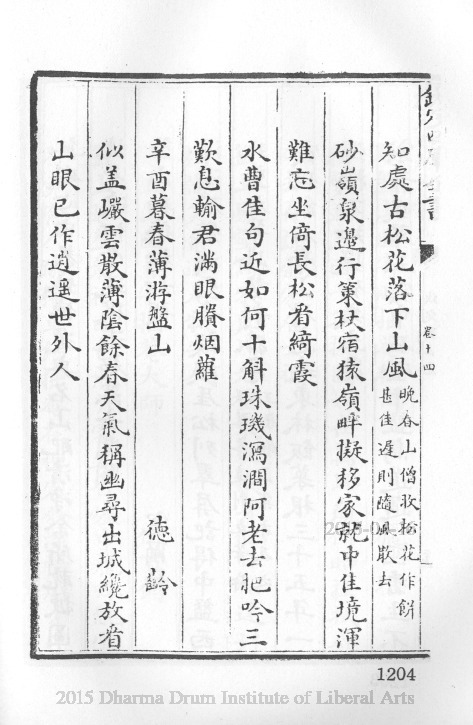 卷十四
知處古松花落下山風晚春山僧收松花作餅
甚佳遲則隨風散去
砂嶺泉邊行策杖宿猿嶺畔擬移家就中佳境渾
難忘坐倚長松看綺霞
水曹佳句近如何十斛珠璣瀉澗阿老去肥吟三
歎息輸君滿眼賸烟蘿
辛酉暮春薄游盤山
德齡
似盖巖雲散薄陰餘春天氣稱幽尋出城纔放看
山眼已作逍遥世外人
1204
2015 Dharma Drum Institute of Liberal Arts